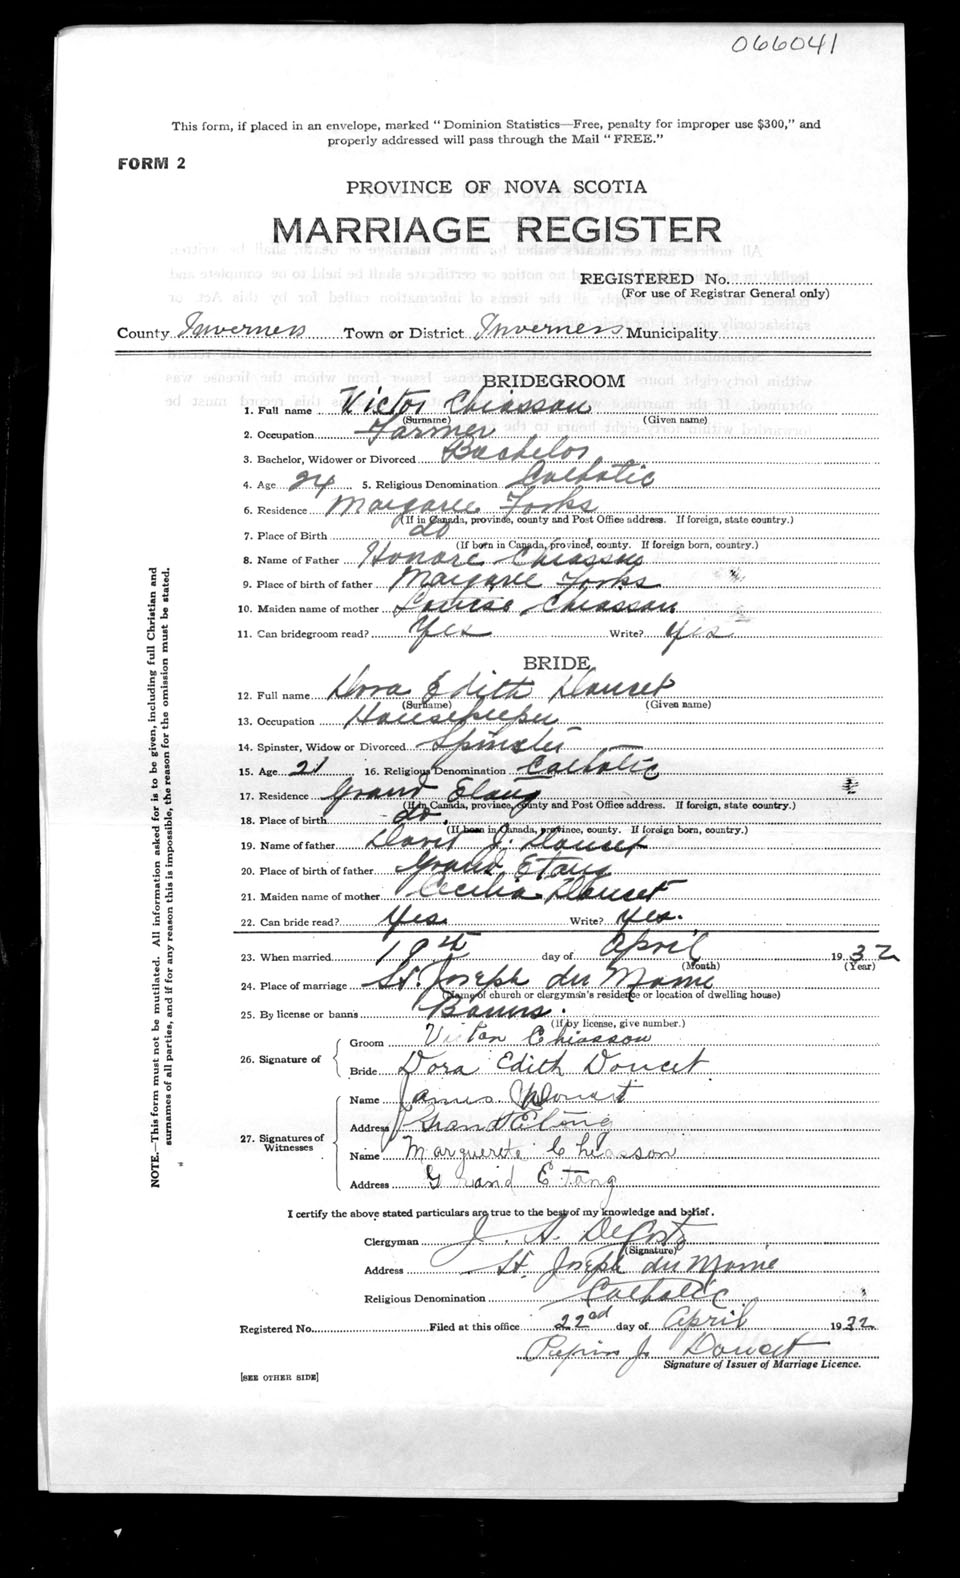 066041
This form, if placed in an envelope, marked " Dominion Statistics—Free, penalty for improper use $300," and
properly addressed will pass through the Mail " FREE."
FORM 2
PROVINCE OF NOVA SCOTIA
MARRIAGE REGISTER
REGISTERED No.
(For use of Registrar General only)
County Inverness Town or District Inverness Municipality
BRIDEGROOM
1. Full name Victor Chiasson
(Surname) (Given name)
2. Occupation Farmer
3. Bachelor, Widower or Divorced Bachelor
4. Age 24 5. Religious Denomination Catholic
6. Residence Margaree Forks
(If in Canada, province, county and Post Office address. If foreign, state country.)
7. Place of Birth do
(If born in Canada, province, county. If foreign born, country.)
8. Name of Father Honore Chiasson
9. Place of birth of father Margaree Forks
10. Maiden name of mother Louise Chiasson
11. Can bridegroom read? Yes Write? Yes
BRIDE
12. Full name Dora Edith Doucet
(Surname) (Given name)
13. Occupation Housekeeper
14. Spinster, Widow or Divorced Spinster
15. Age 21 16. Religious Denomination Catholic
17. Residence Grand Etang
(If in Canada, province, county and Post Office address. If foreign, state country.)
18. Place of birth do.
(If born in Canada, province, county. If foreign born, country.)
19. Name of father David J. Doucet
20. Place of birth of father Grand Etang
21. Maiden name of mother Cecilia Doucet
22. Can bride read? Yes Write? Yes.
23. When married 19th day of April 1932
(Month) (Year)
24. Place of marriage St. Joseph du Moine
(Name of church or clergyman's residence or location of dwelling house)
25. By license or banns Banns.
(If by license, give number.)
26. Signature of
Groom Victor Chiasson
Bride Dora Edith Doucet
27. Signatures of Witnesses
Name James Doucet
Address Grand Etang
Name Marguerite Chiasson
Address Grand Etang
I certify the above stated particulars are true to the best of my knowledge and belief.
Clergyman J. A. DeCoste
(Signature)
Address St. Joseph du Moine
Religious Denomination Catholic
Registered No. Filed at this office 22nd day of April 1932
J. Doucet
Signature of Issuer of Marriage Licence.
[SEE OTHER SIDE]
NOTE.—This form must not be mutilated. All information asked for is to be given, including full Christian and
surnames of all parties, and if for any reason this is impossible, the reason for the omission must be stated.